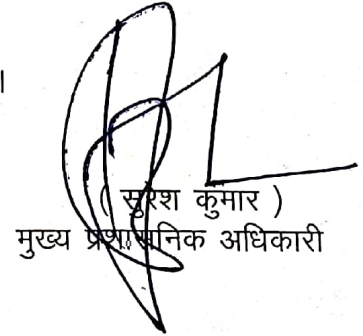 ( सुरेश कुमार )
मुख्य प्रशासनिक अधिकारी